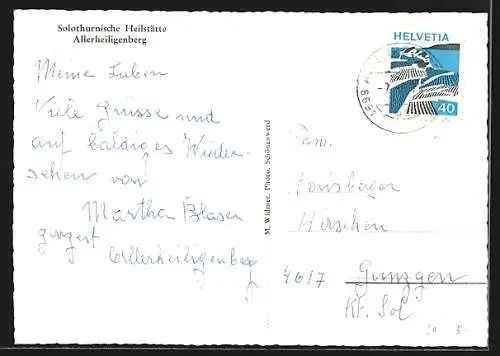 Solothurnische Heilstätte
Allerheiligenberg
Meine Lieben
Viele Grüsse und
auf baldiges Wieder-
sehen von
Martha Blaser
zurzeit
Allerheiligenberg
M. Widmer, Photo, Schönenwerd
HELVETIA
40
Fam.
Hirschen
4617 Gunzgen
Kt. Sol